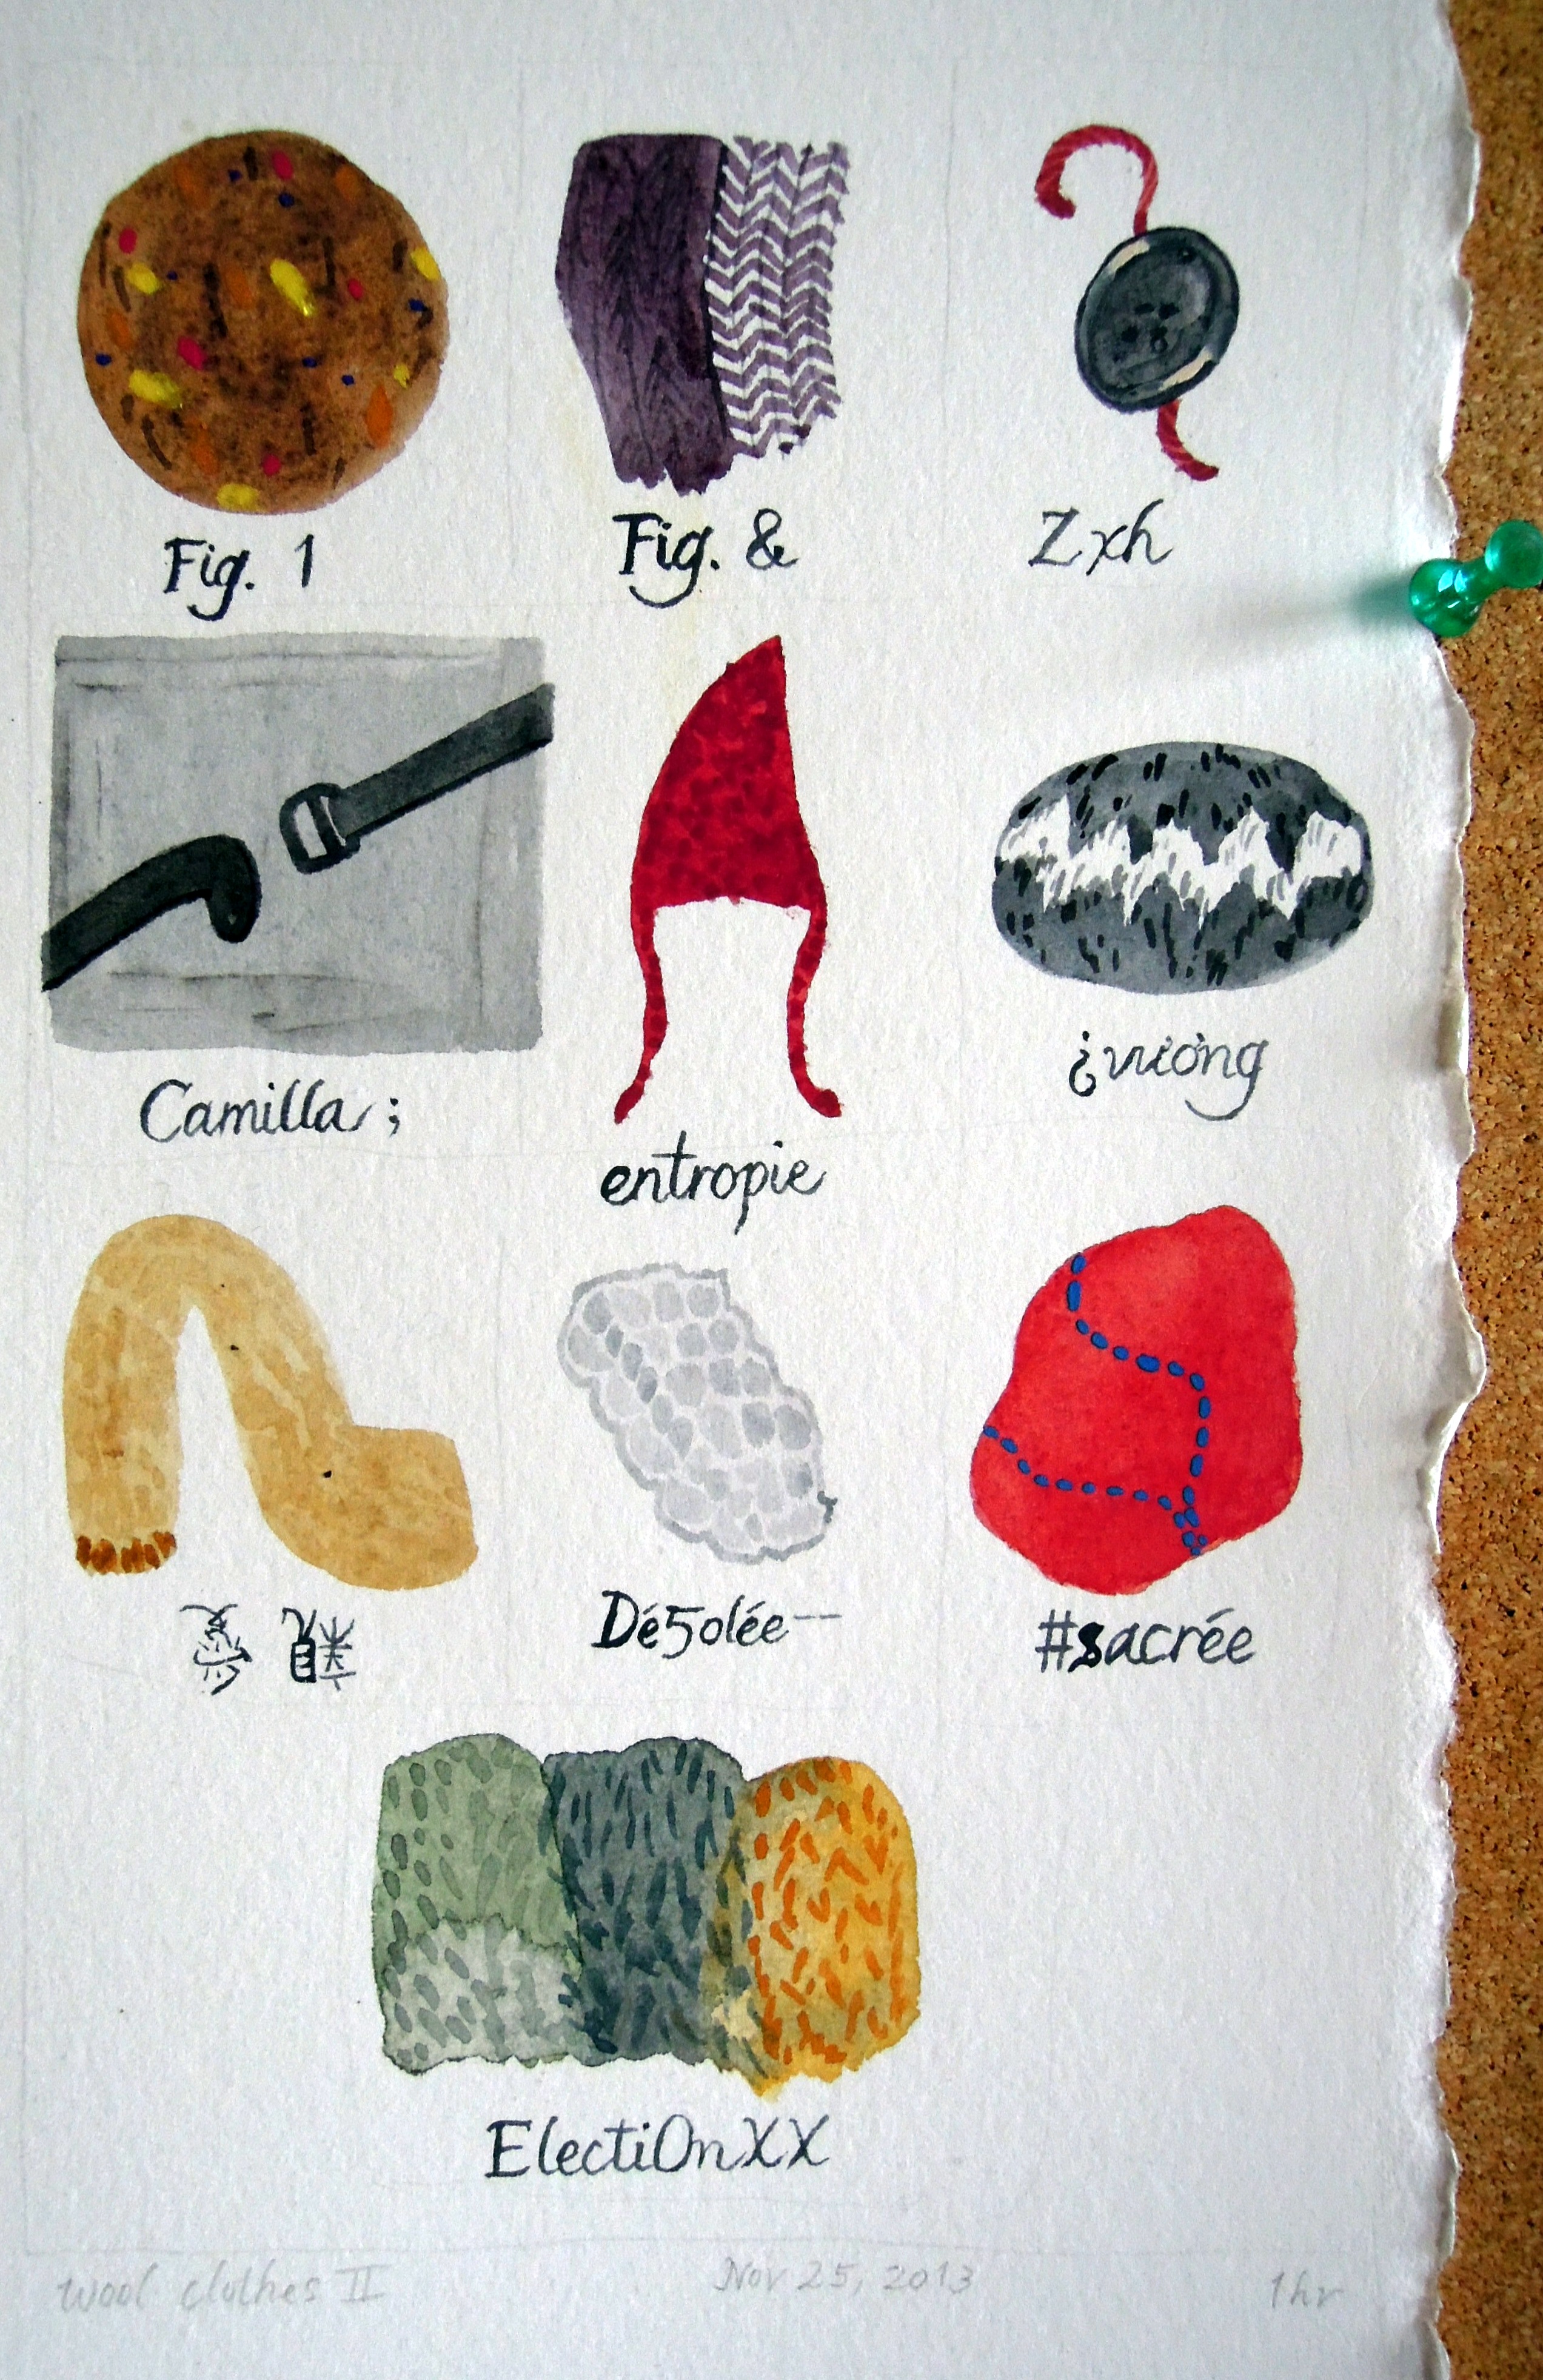 Fig. 1
Fig. &
Zxh
Camilla ;
entropie
¿vương
Dé5olée--
#sacrée
ElectiOnXX
Wool clothes II
Nov 25, 2013
1hr